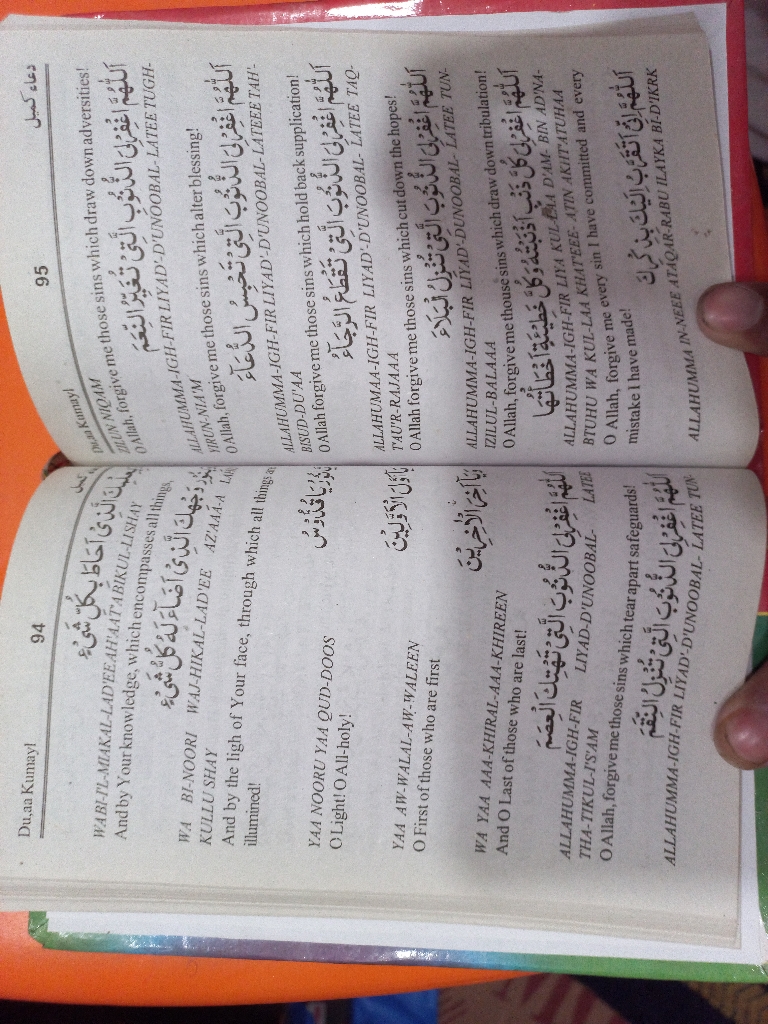 Du,aa Kumayl
94
وَبِعِلْمِكَ الَّذِىْ اَحَاطَ بِكُلِّ شَىْءٍ
WABI-I'L-MIAKAL-LAD'EEAH'AAT'ABIKUL-LISHAY
And by Your knowledge, which encompasses all things,
وَبِنُوْرِ وَجْهِكَ الَّذِىْ اَضَاءَ لَهُ كُلُّ شَىْءٍ
WA BI-NOORI WAJ-HIKAL-LAD'EE AZ'AAA-A
KULLU SHAY
And by the ligh of Your face, through which all things
illumined!
يَا نُوْرُ يَا قُدُّوْسُ
YAA NOORU YAA QUD-DOOS
O Light! O All-holy!
يَا اَوَّلَ الْاَوَّلِيْنَ
YAA AW-WALAL-AW-WALEEN
O First of those who are first
وَيَا اٰخِرَ الْاٰخِرِيْنَ
WA YAA AAA-KHIRAL-AAA-KHIREEN
And O Last of those who are last!
اَللّٰهُمَّ اغْفِرْ لِىَ الذُّنُوْبَ الَّتِىْ تَهْتِكُ الْعِصَمَ
ALLAHUMMA-IGH-FIR LIYAD-D'UNOOBAL- LATEE
THA-TIKUL-I'S'AM
O Allah, forgive me those sins which tear apart safeguards!
اَللّٰهُمَّ اغْفِرْ لِىَ الذُّنُوْبَ الَّتِىْ تُنْزِلُ النِّقَمَ
ALLAHUMMA-IGH-FIR LIYAD'-D'UNOOBAL- LATEE TUN-
Du,aa Kumayl
95
دعاء كميل
ZILUN-NIQAM
O Allah, forgive me those sins which draw down adversities!
اَللّٰهُمَّ اغْفِرْ لِىَ الذُّنُوْبَ الَّتِىْ تُغَيِّرُ النِّعَمَ
ALLAHUMMA-IGH-FIR LIYAD'-D'UNOOBAL- LATEE TUGH-
YIRUN-NIA'M
O Allah, forgive me those sins which alter blessing!
اَللّٰهُمَّ اغْفِرْ لِىَ الذُّنُوْبَ الَّتِىْ تَحْبِسُ الدُّعَآءَ
ALLAHUMMA-IGH-FIR LIYAD'-D'UNOOBAL- LATEEE TAH'-
BISUD-DU'AA
O Allah forgive me those sins which hold back supplication!
اَللّٰهُمَّ اغْفِرْ لِىَ الذُّنُوْبَ الَّتِىْ تَقْطَعُ الرَّجَآءَ
ALLAHUMAA-IGH-FIR LIYAD'-D'UNOOBAL- LATEE TAQ-
T'AU'R-RAJAAA
O Allah forgive me those sins which cut down the hopes!
اَللّٰهُمَّ اغْفِرْ لِىَ الذُّنُوْبَ الَّتِىْ تُنْزِلُ الْبَلَاءَ
ALLAHUMMA-IGH-FIR LIYAD'-DUNOOBAL- LATEE TUN-
IZILUL-BALAAA
O Allah, forgive me thouse sins which draw down tribulation!
اَللّٰهُمَّ اغْفِرْ لِىْ كُلَّ ذَنْبٍ اَذْنَبْتُهُ وَكُلَّ خَطِيْئَةٍ اَخْطَاْتُهَا
ALLAHUMMA-IGH-FIR LIYA KUL-LAA D'AM- BIN AD'NA-
BTUHU WA KUL-LAA KHATEEE- ATIN AKHT'ATUHAA
O Allah, forgive me every sin I have committed and every
mistake I have made!
اَللّٰهُمَّ اِنِّىْ اَتَقَرَّبُ اِلَيْكَ بِذِكْرِكَ
ALLAHUMMA IN-NEEE ATAQAR-RABU ILAYKA BI-D'IKRK